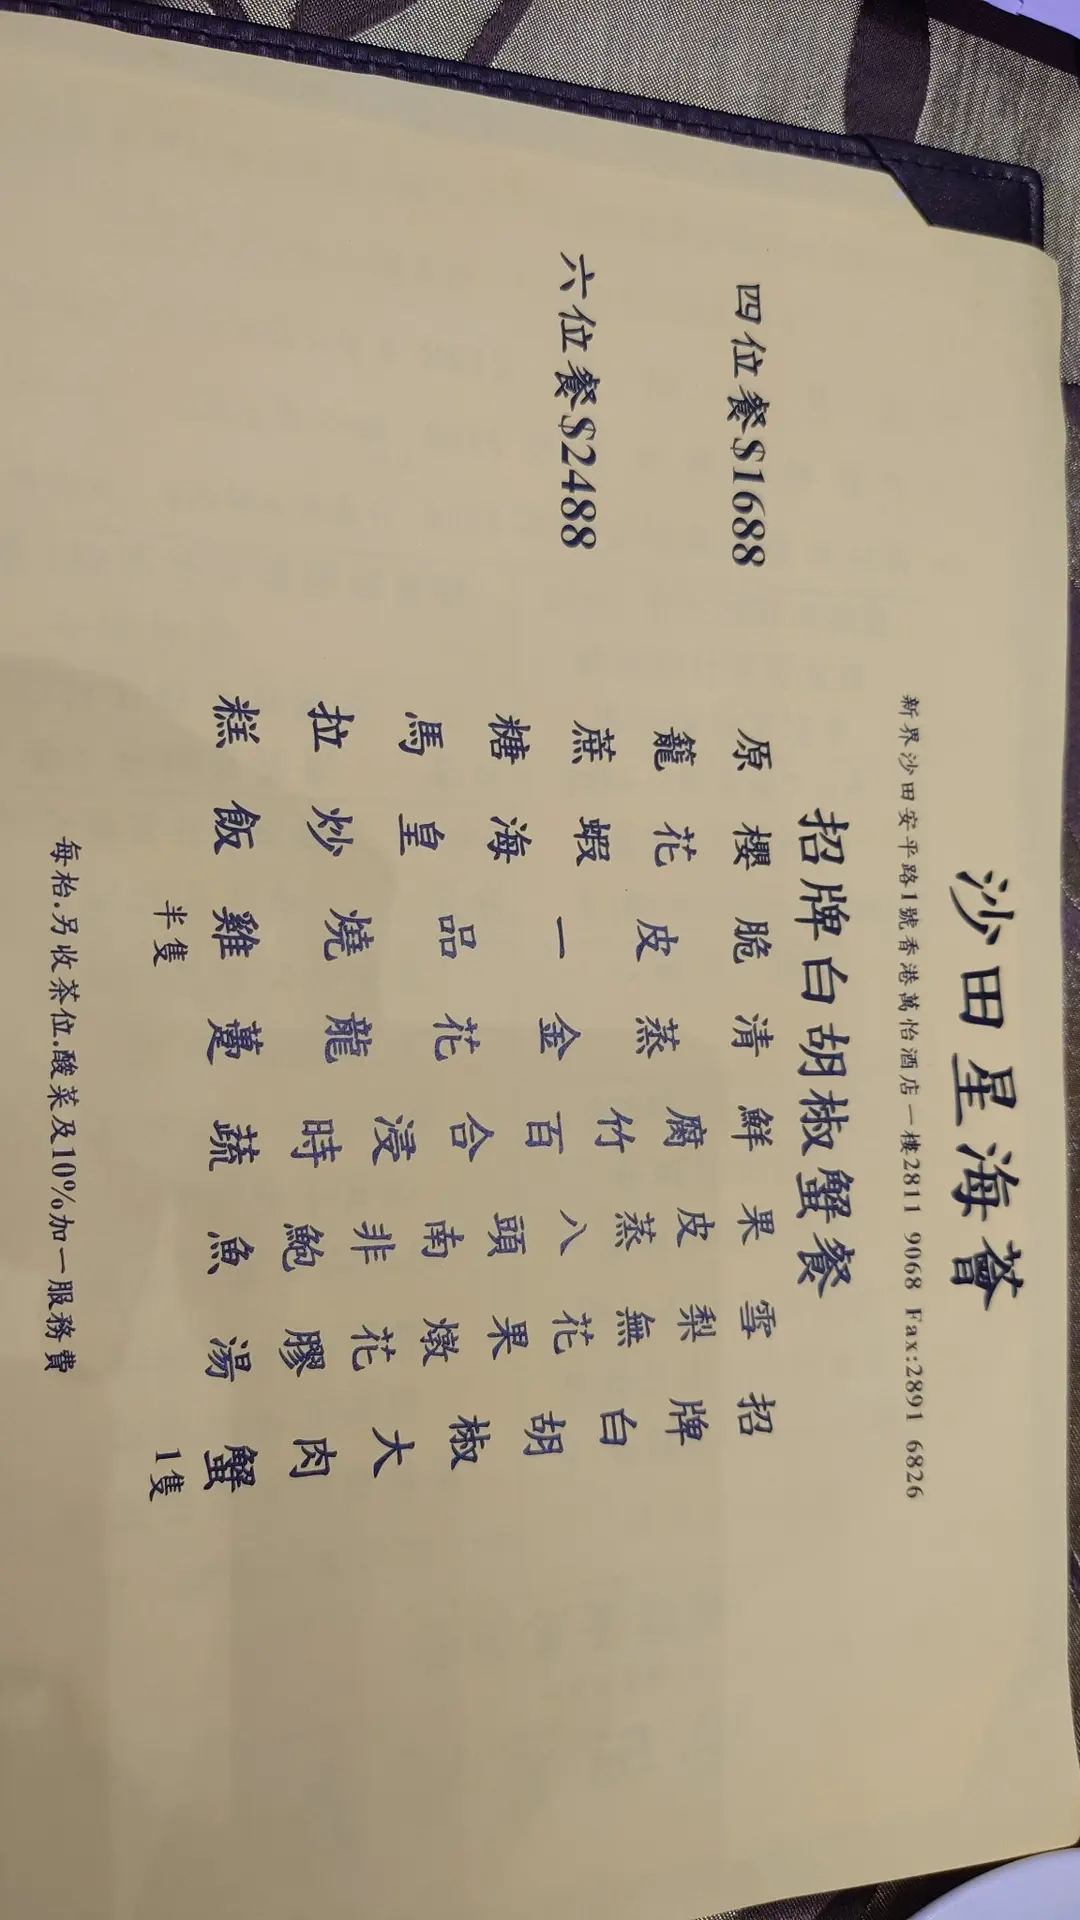 沙田星海薈
新界沙田安平路1號香港萬怡酒店一樓2811 9068 Fax:2891 6826
招牌白胡椒蟹餐
招牌白胡椒大肉蟹 1隻
雪梨無花果燉花膠湯
果皮蒸八頭南非鮑魚
鮮腐竹百合浸時蔬
清蒸金花龍躉
脆皮一品燒雞 半隻
櫻花蝦海皇炒飯
原籠蔗糖馬拉糕
四位餐$1688
六位餐$2488
每枱.另收茶位.酸菜及10%加一服務費